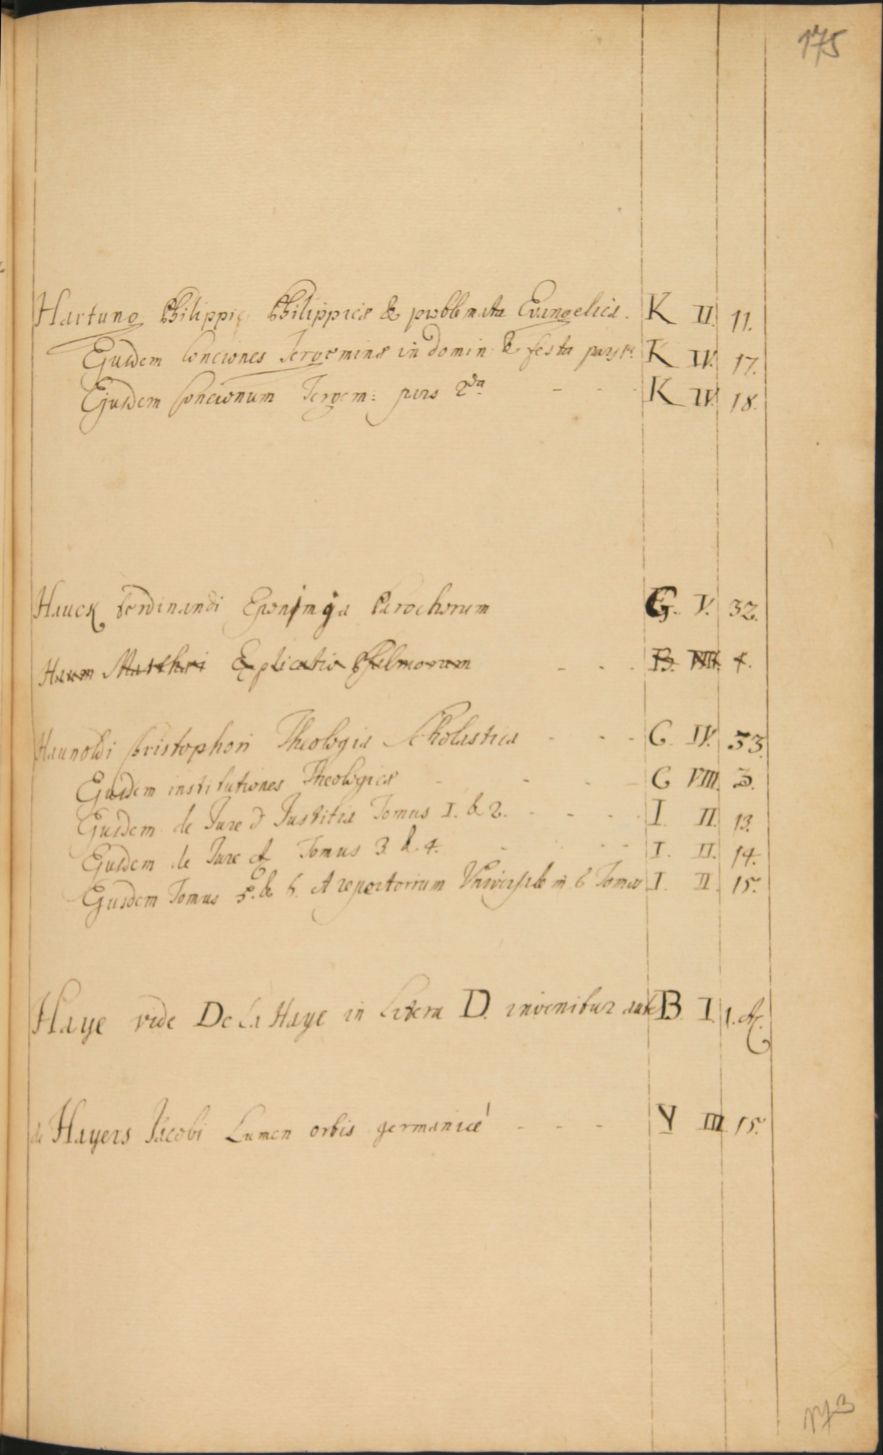 175
Hartung Philippi Philippicæ & problemata Evangelica. K II. 11.
Ejusdem Conciones Tergeminæ in Domin: & festa pars 1ᵃ K IV. 17.
Ejusdem Concionum Tergem: pars 2da - - - K IV. 18.
Hauck Ferdinandi Parochorum G. V. 32.
Haum Matthæi Explicatio Psalmorum - - - B. VIII. 4.
Haunoldi Christophori Theologia Scholastica - - - C IV. 33.
Ejusdem institutiones Theologicæ - - - C VIII. 3.
Ejusdem de Jure & Justitia Tomus 1. & 2. - - - I II. 13.
Ejusdem de Jure et Tomus 3. & 4. - - - I. II. 14.
Ejusdem Tomus 5. & 6. et repertorium Universale in 6 Tomos I. II. 15.
Haye vide De La Haye in Litera D. invenitur autem B I. 1. &c.
de Hayers Jacobi Lumen orbis germaniæ - - - V III 15.
173